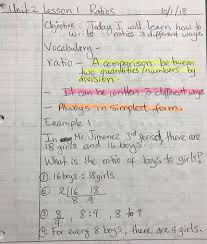 Unit 2 Lesson 1 Ratios 10/1/18
Objective - Today I will learn how to
write ratios 3 different ways.
Vocabulary -
ratio - A comparison between
two quantities/numbers by
division.
- It can be written 3 different ways
- Always in simplest form.
Example 1
In Mr. Jimenez 3rd period, there are
18 girls and 16 boys.
What is the ratio of boys to girls?
① 16 boys : 18 girls
② 2|16 18
8 9
③ 8/9, 8:9, 8 to 9
④ For every 8 boys, there are 9 girls.